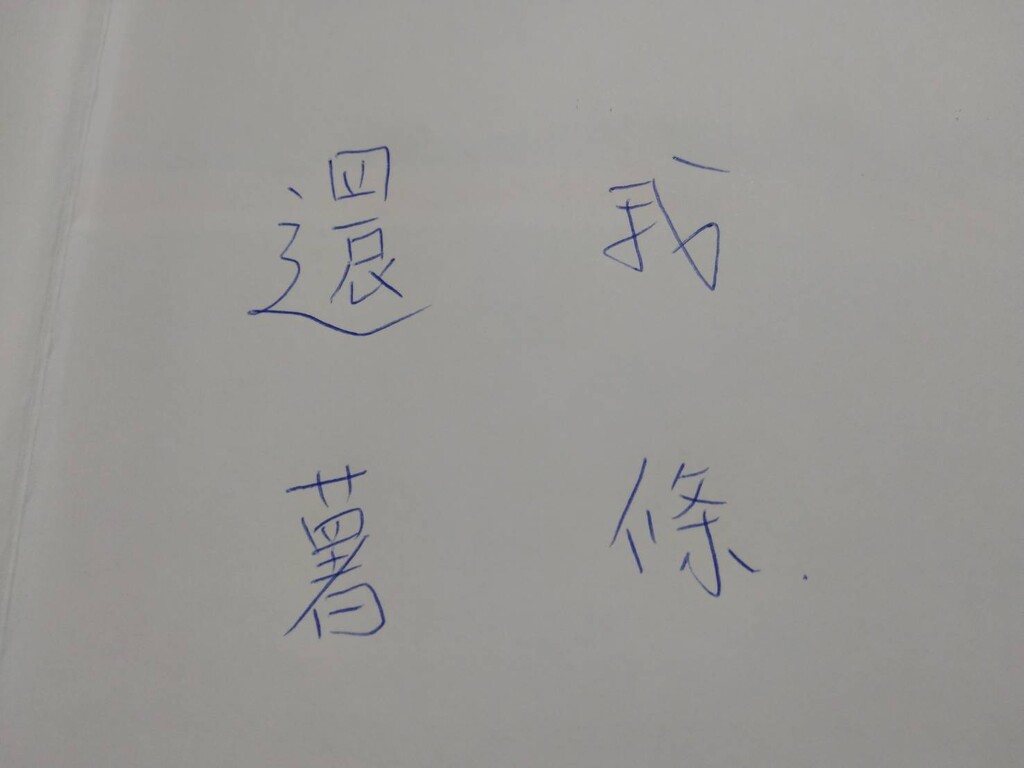 還我
薯條.